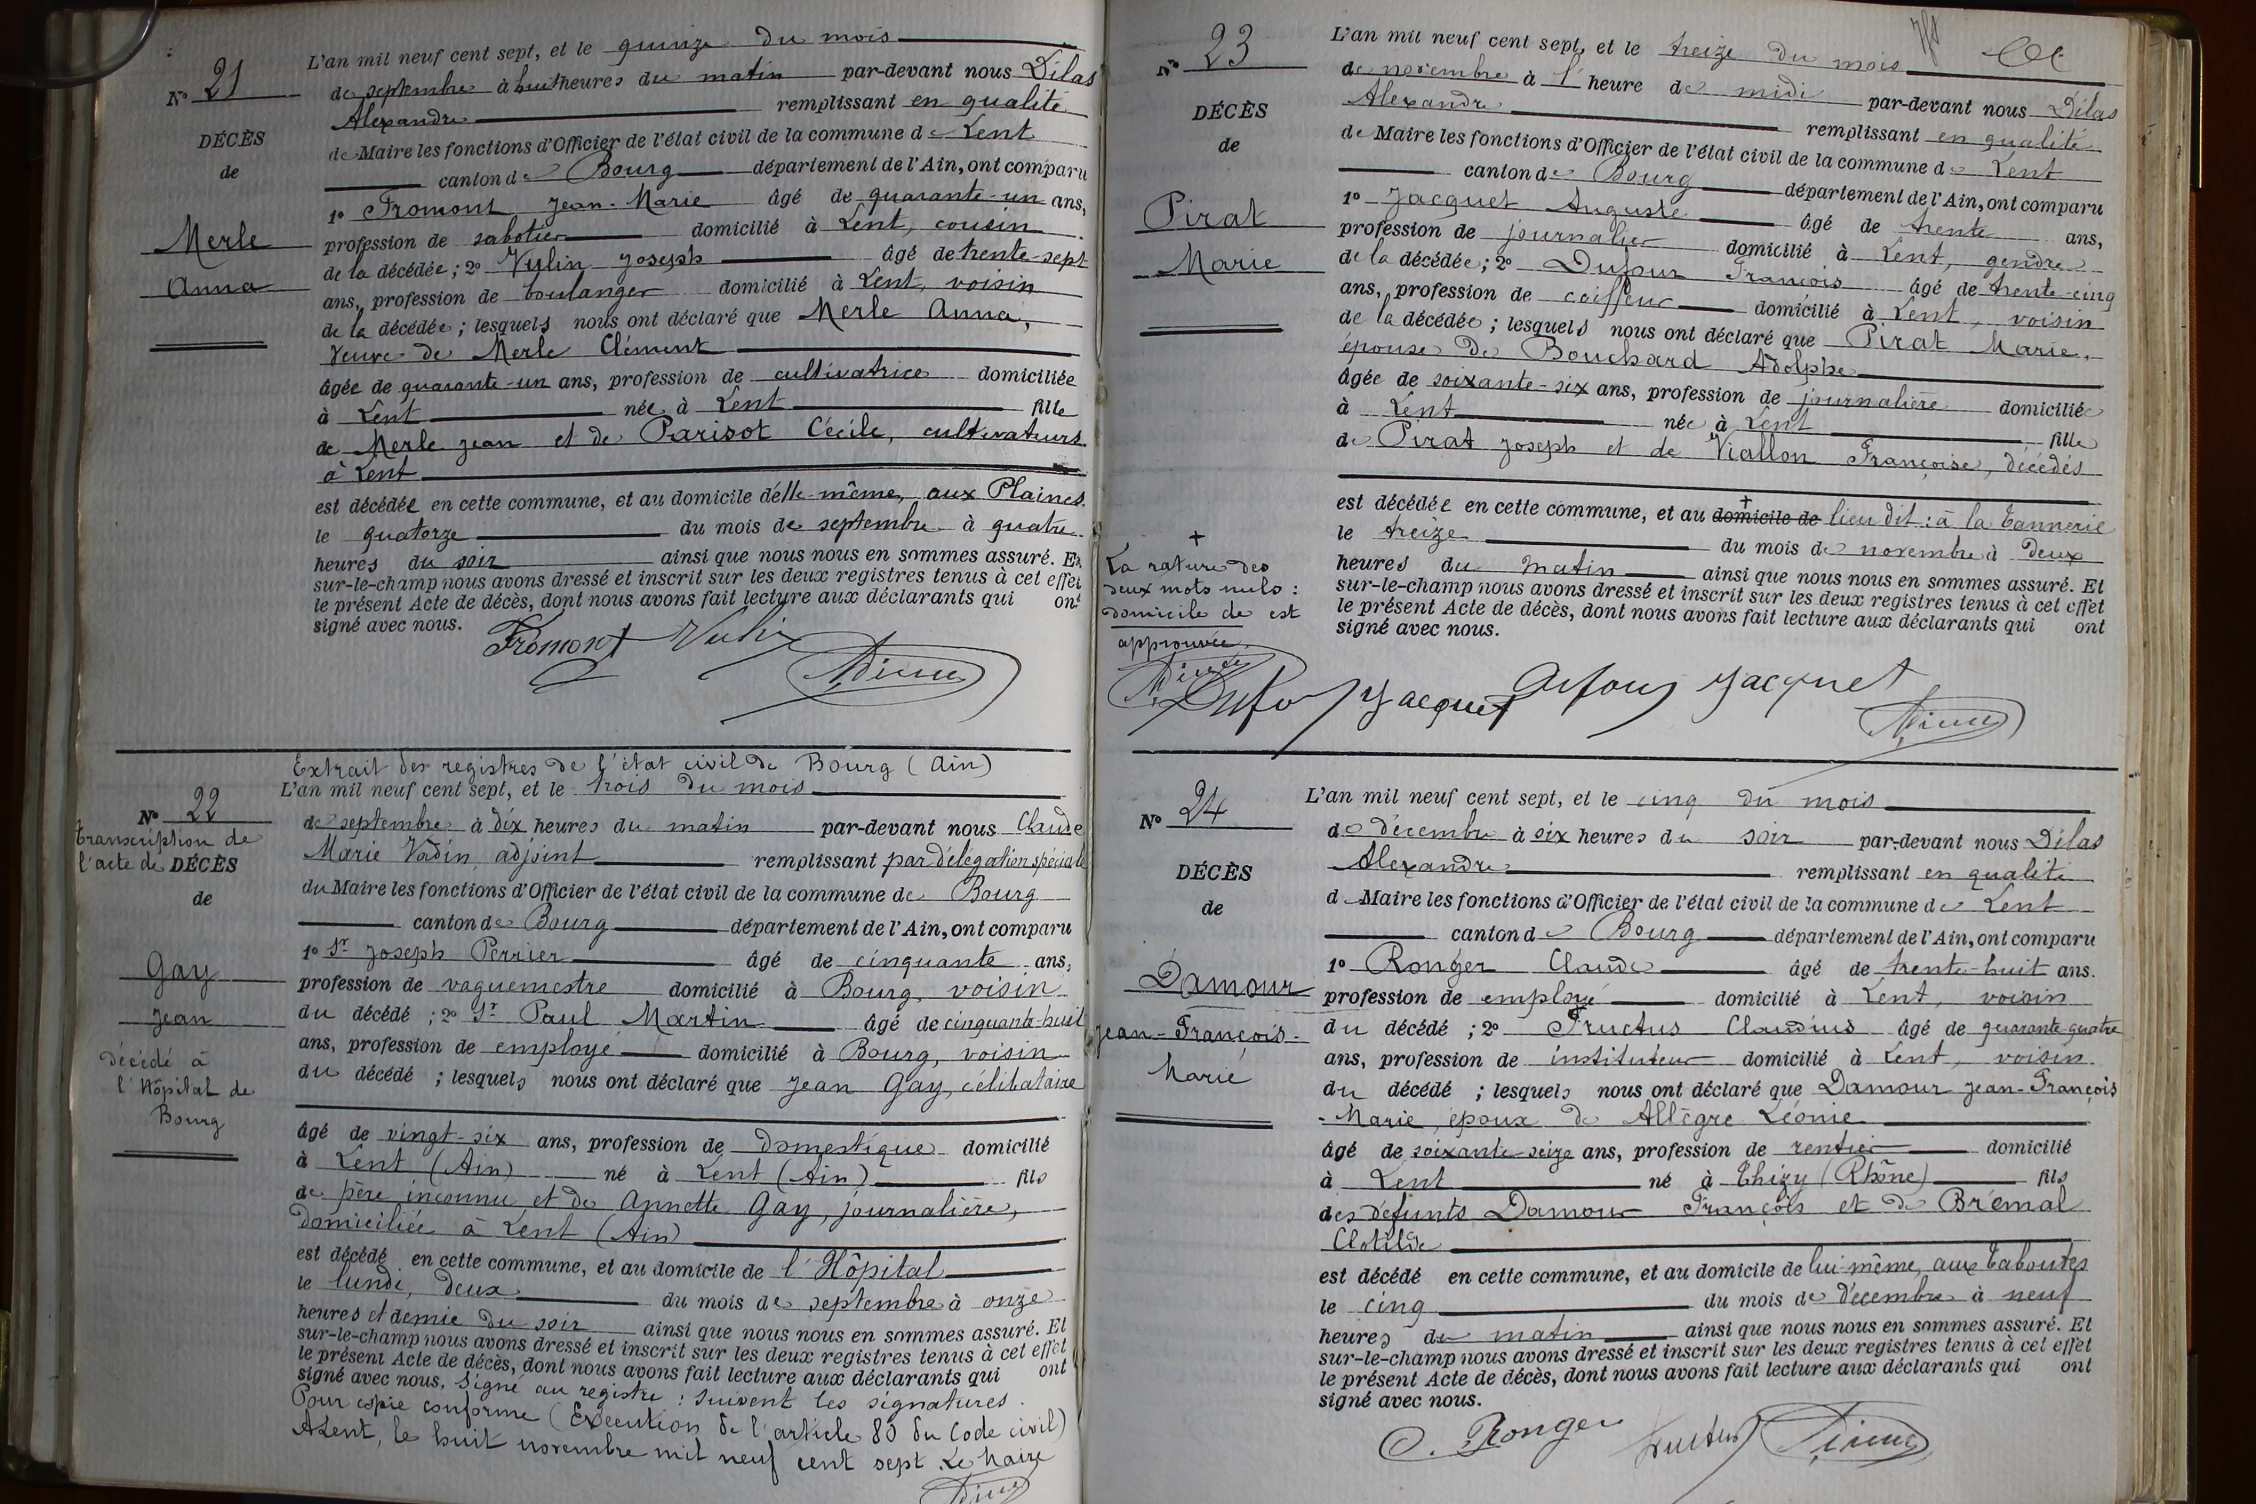 N° 21
DÉCÈS
de
Merle
Anna
L'an mil neuf cent sept, et le quinze du mois
de septembre à huit heures du matin par-devant nous Dilas
Alexandre remplissant en qualité
de Maire les fonctions d'Officier de l'état civil de la commune de Lent
canton de Bourg département de l'Ain, ont comparu
1° Fromont Jean-Marie âgé de quarante-un ans,
profession de sabotier domicilié à Lent, cousin
de la décédée ; 2° Vulin Joseph âgé de trente-sept
ans, profession de boulanger domicilié à Lent, voisin
de la décédée ; lesquels nous ont déclaré que Merle Anna,
veuve de Merle Clément
âgée de quarante-un ans, profession de cultivatrice domiciliée
à Lent née à Lent fille
de Merle Jean et de Parisot Cécile, cultivateurs
à Lent
est décédée en cette commune, et au domicile d'elle-même, aux Plaines
le quatorze du mois de septembre à quatre
heures du soir ainsi que nous nous en sommes assuré. Et
sur-le-champ nous avons dressé et inscrit sur les deux registres tenus à cet effet
le présent Acte de décès, dont nous avons fait lecture aux déclarants qui ont
signé avec nous.
Fromont Vulin
N° 22
Transcription de
l'acte de DÉCÈS
de
Gay
Jean
Décédé à
l'Hôpital de
Bourg
Extrait des registres de l'état civil de Bourg (Ain)
L'an mil neuf cent sept, et le trois du mois
de septembre à dix heures du matin par-devant nous Claude
Marie Vadin, adjoint remplissant par délégation spéciale
du Maire les fonctions d'Officier de l'état civil de la commune de Bourg
canton de Bourg département de l'Ain, ont comparu
1° Sr Joseph Perrier âgé de cinquante ans,
profession de vaguemestre domicilié à Bourg, voisin
du décédé ; 2° Sr Paul Martin âgé de cinquante-huit
ans, profession de employé domicilié à Bourg, voisin
du décédé ; lesquels nous ont déclaré que Jean Gay, célibataire
âgé de vingt-six ans, profession de domestique domicilié
à Lent (Ain) né à Lent (Ain) fils
de père inconnu et de Annette Gay, journalière,
domiciliée à Lent (Ain)
est décédé en cette commune, et au domicile de l'Hôpital
le lundi, deux du mois de septembre à onze
heures et demie du soir ainsi que nous nous en sommes assuré. Et
sur-le-champ nous avons dressé et inscrit sur les deux registres tenus à cet effet
le présent Acte de décès, dont nous avons fait lecture aux déclarants qui ont
signé avec nous. Signé au registre : suivent les signatures.
Pour copie conforme (Exécution de l'article 80 du Code civil)
A Lent, le huit novembre mil neuf cent sept. Le Maire
N° 23
DÉCÈS
de
Pirat
Marie
L'an mil neuf cent sept, et le treize du mois
de novembre à l'heure de midi par-devant nous Dilas
Alexandre remplissant en qualité
de Maire les fonctions d'Officier de l'état civil de la commune de Lent
canton de Bourg département de l'Ain, ont comparu
1° Jacquet Auguste âgé de trente ans,
profession de journalier domicilié à Lent, gendre
de la décédée ; 2° Dufour François âgé de trente-cinq
ans, profession de coiffeur domicilié à Lent, voisin
de la décédée ; lesquels nous ont déclaré que Pirat Marie,
épouse de Bouchard Adolphe
âgée de soixante-six ans, profession de journalière domiciliée
à Lent née à Lent fille
de Pirat Joseph et de Viallon Françoise, décédés
est décédée en cette commune, et au + domicile de lieu dit : à la Tannerie
le treize du mois de novembre à deux
heures du matin ainsi que nous nous en sommes assuré. Et
sur-le-champ nous avons dressé et inscrit sur les deux registres tenus à cet effet
le présent Acte de décès, dont nous avons fait lecture aux déclarants qui ont
signé avec nous.
+
La rature des
deux mots nuls :
domicile de est
approuvée.
Dufour Jacquet Dufour Jacquet
N° 24
DÉCÈS
de
Damour
Jean-François-
Marie
L'an mil neuf cent sept, et le cinq du mois
de décembre à six heures du soir par-devant nous Dilas
Alexandre remplissant en qualité
de Maire les fonctions d'Officier de l'état civil de la commune de Lent
canton de Bourg département de l'Ain, ont comparu
1° Ronger Claude âgé de trente-huit ans.
profession de employé domicilié à Lent, voisin
du décédé ; 2° Fructus Claudius âgé de quarante-quatre
ans, profession de instituteur domicilié à Lent, voisin
du décédé ; lesquels nous ont déclaré que Damour Jean-François
-Marie, époux de Allègre Léonie
âgé de soixante-seize ans, profession de rentier domicilié
à Lent né à Thizy (Rhône) fils
des défunts Damour François et de Brémal
Clotilde
est décédé en cette commune, et au domicile de lui-même, aux Taboutes
le cinq du mois de décembre à neuf
heures du matin ainsi que nous nous en sommes assuré. Et
sur-le-champ nous avons dressé et inscrit sur les deux registres tenus à cet effet
le présent Acte de décès, dont nous avons fait lecture aux déclarants qui ont
signé avec nous.
C. Ronger Fructus